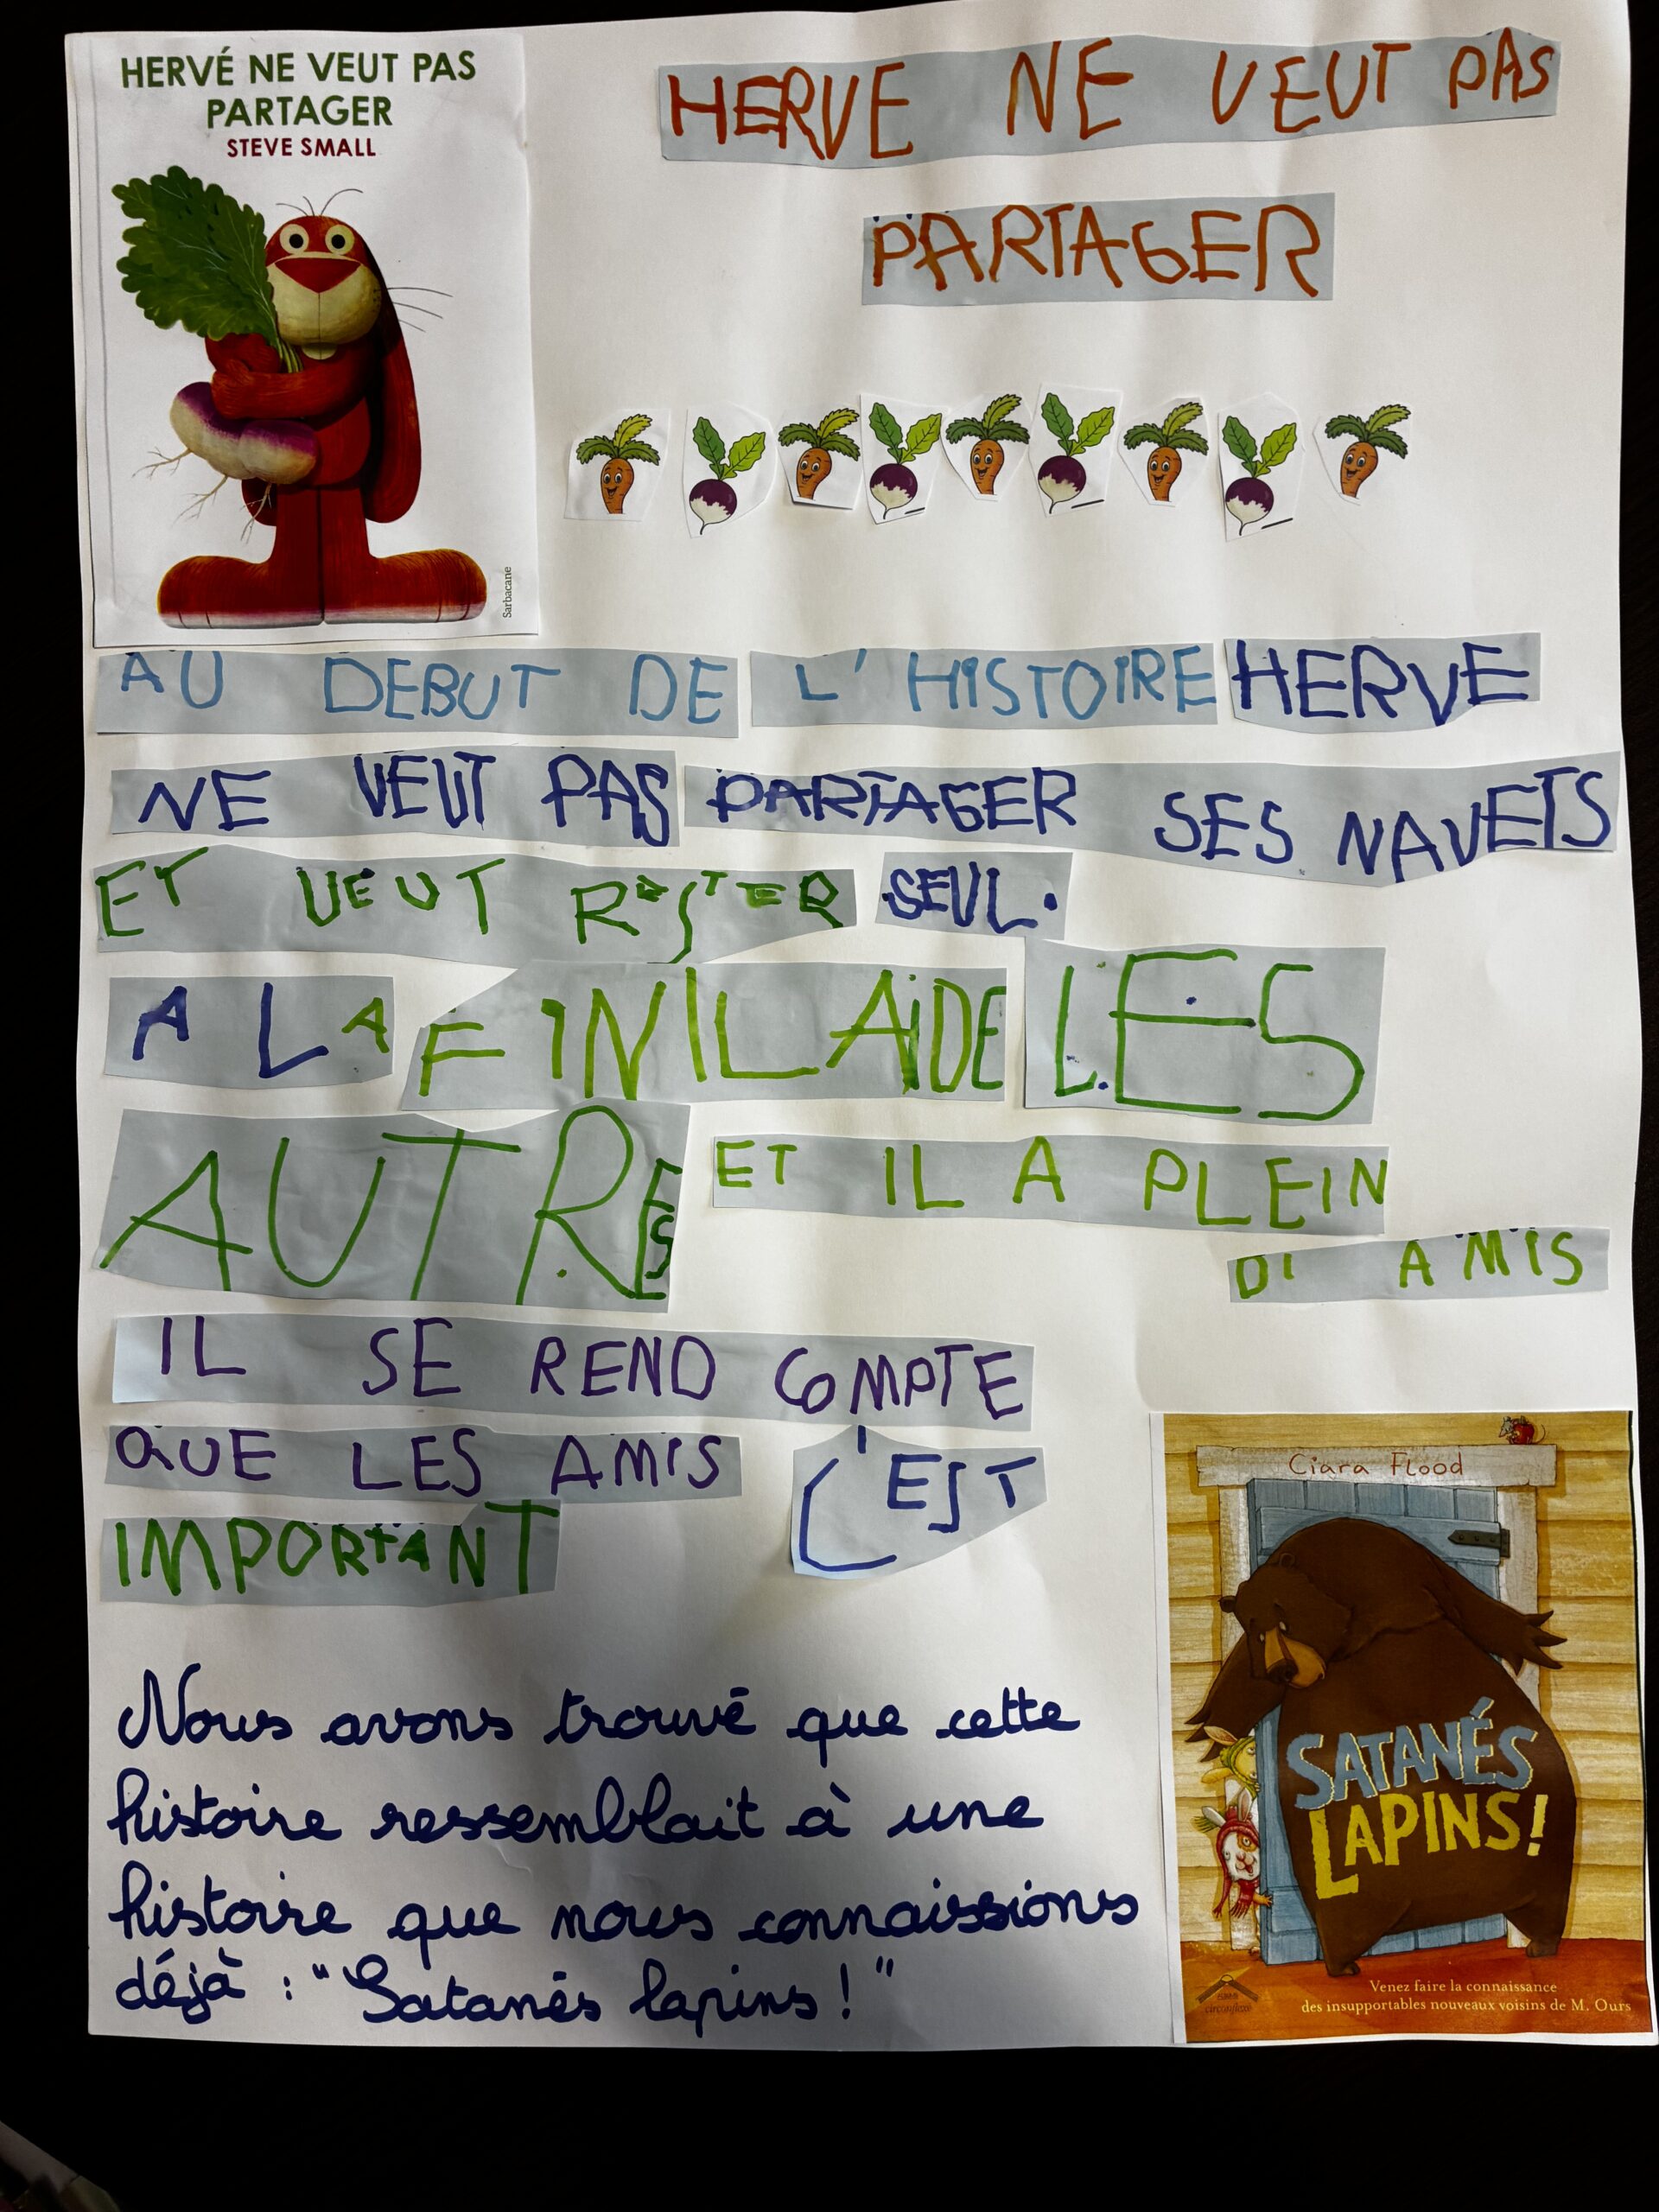 HERVÉ NE VEUT PAS
PARTAGER
STEVE SMALL
Sarbacane
HERVE NE VEUT PAS
PARTAGER
AU DEBUT DE L'HISTOIRE HERVE
NE VEUT PAS PARTAGER SES NAVETS
ET VEUT RESTER SEUL.
A LA FIN IL AIDE LES
AUTRES ET IL A PLEIN
D'AMIS
IL SE REND COMPTE
QUE LES AMIS C'EST
IMPORTANT
Nous avons trouvé que cette
histoire ressemblait à une
histoire que nous connaissions
déjà : "Satanés lapins ! "
Ciara Flood
SATANÉS
LAPINS!
Venez faire la connaissance
des insupportables nouveaux voisins de M. Ours